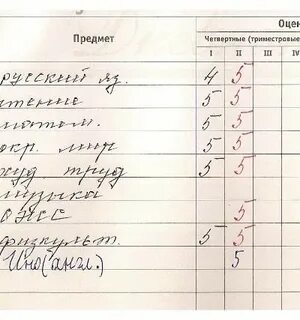 Предмет Оцен
Четвертные (триместровые
I II III IV
русский яз. 4 5
чтение 5 5
матем. 5 5
окр. мир 5 5
худ. труд 5 5
музыка
ОЗСС 5
физкульт. 5 5
Ино(англ.) 5